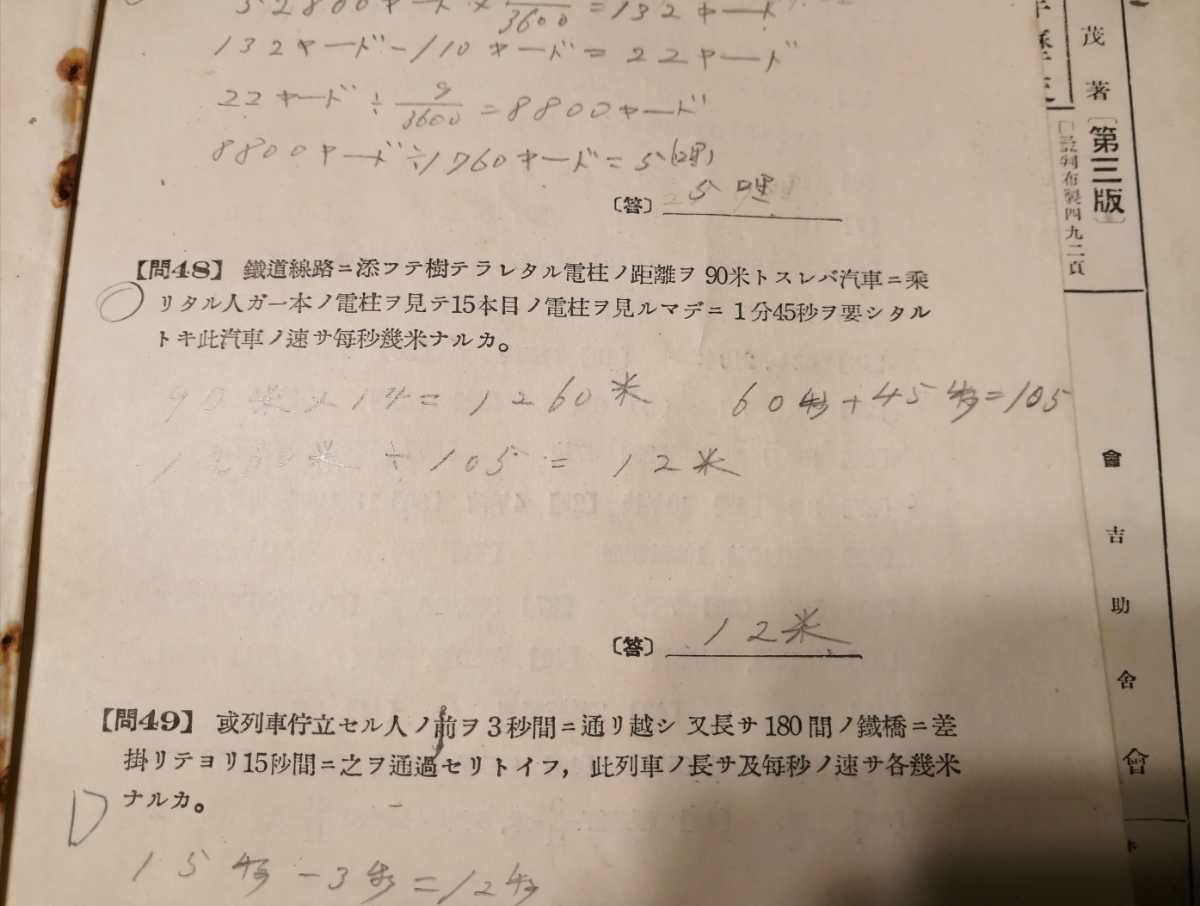 52800ヤード×9/3600=132ヤード
132ヤード-110ヤード=22ヤード
22ヤード÷9/3600=8800ヤード
8800ヤード÷1760ヤード=5(哩)
〔答〕 5哩
【問48】 鐵道線路ニ添フテ樹テラレタル電柱ノ距離ヲ 90米トスレバ汽車ニ乘
リタル人ガ一本ノ電柱ヲ見テ15本目ノ電柱ヲ見ルマデニ 1分45秒ヲ要シタル
トキ此汽車ノ速サ每秒幾米ナルカ。
90米×14=1260米 60秒+45秒=105
1260米÷105=12米
〔答〕 12米
【問49】 或列車佇立セル人ノ前ヲ3秒間ニ通リ越シ 又長サ180間ノ鐵橋ニ差
掛リテヨリ15秒間ニ之ヲ通過セリトイフ，此列車ノ長サ及每秒ノ速サ各幾米
ナルカ。
15秒-3秒=12秒
茂著
第三版
布製四九二頁
會吉助舍會